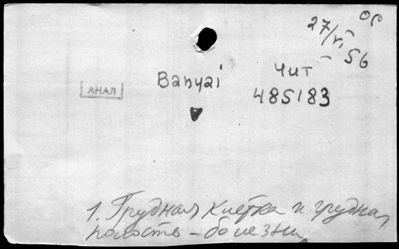 27/VI - 56
АНАЛ
Banyai
Чит
485183
1. Грудная клетка и грудная
полость - болезни